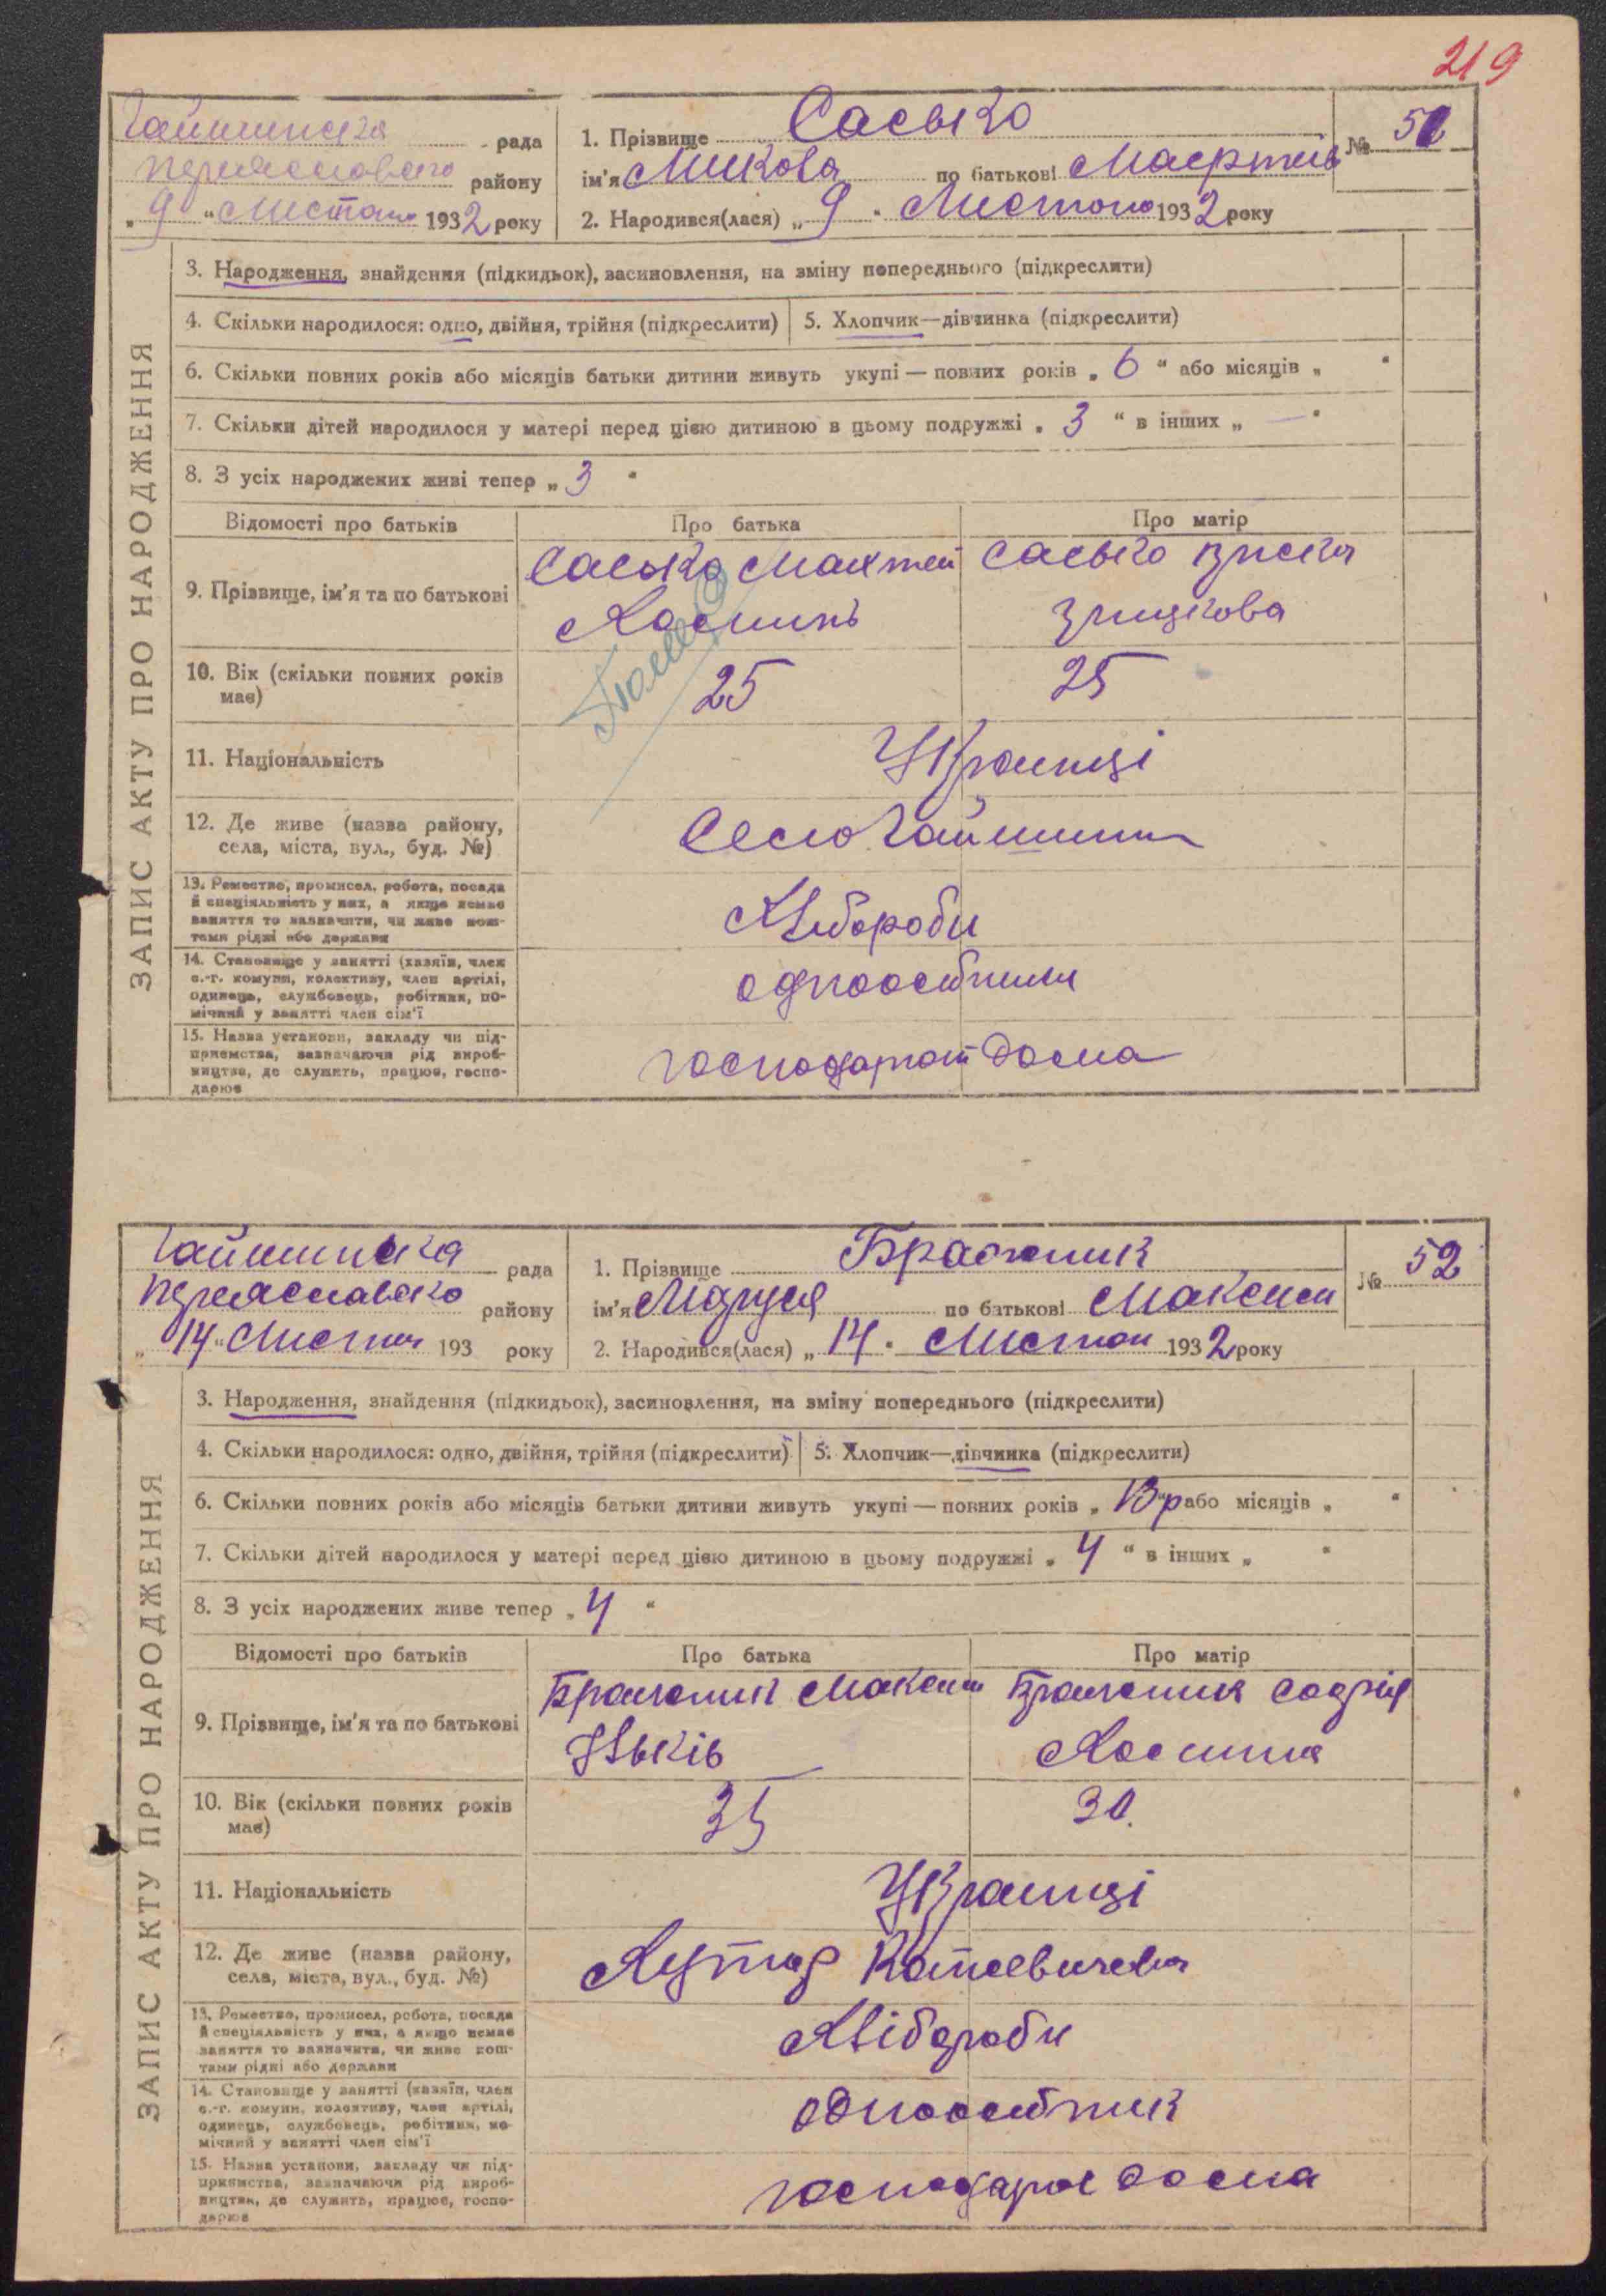 219
Гайшинська рада
Переяславского району
„ 9 “ Листопа 1932 року
1. Прізвище Сасько
ім'я Микола по батькові
№ 51
2. Народився(лася) „ 9 “ Листопа 1932 року
ЗАПИС АКТУ ПРО НАРОДЖЕННЯ
3. Народження, знайдення (підкидьок), засиновлення, на зміну попереднього (підкреслити)
4. Скільки народилося: одно, двійня, трійня (підкреслити) 5. Хлопчик—дівчинка (підкреслити)
6. Скільки повних років або місяців батьки дитини живуть укупі — повних років „ 6 “ або місяців „ “
7. Скільки дітей народилося у матері перед цією дитиною в цьому подружжі „ 3 “ в інших „ — “
8. З усіх народжених живі тепер „ 3 “
Відомості про батьків Про батька Про матір
9. Прізвище, ім'я та по батькові
Сасько Мактей Сасько Приська
Грицкова
10. Вік (скільки повних років має) 25 25
11. Національність Українці
12. Де живе (назва району, села, міста, вул., буд. №) Село Гайшин
13. Ремество, промисел, робота, посада
й спеціяльність у них, а якщо немає
заняття то зазначити, чи живе кош-
тами рідні або держави
Хлібороби
14. Становище у занятті (хазяїн, член
с.-г. комуни, колективу, член артілі,
одинець, службовець, робітник, по-
мічний у занятті член сім'ї
одноосібники
15. Назва установи, закладу чи під-
приємства, зазначаючи рід вироб-
ництва, де служить, працює, госпо-
дарює
господарюють дома
Гайшинська рада
Переяславско району
„ 14 “ Листоп 193 року
1. Прізвище Бражник
ім'я Маруся по батькові Максим
№ 52
2. Народився(лася) „ 14 “ Листопа 1932 року
ЗАПИС АКТУ ПРО НАРОДЖЕННЯ
3. Народження, знайдення (підкидьок), засиновлення, на зміну попереднього (підкреслити)
4. Скільки народилося: одно, двійня, трійня (підкреслити) 5. Хлопчик—дівчинка (підкреслити)
6. Скільки повних років або місяців батьки дитини живуть укупі — повних років „ 13 р “ або місяців „ “
7. Скільки дітей народилося у матері перед цією дитиною в цьому подружжі „ 4 “ в інших „ “
8. З усіх народжених живе тепер „ 4 “
Відомості про батьків Про батька Про матір
9. Прізвище, ім'я та по батькові
Бражник Максим Бражник
Ільків
10. Вік (скільки повних років має) 35 30.
11. Національність Українці
12. Де живе (назва району, села, міста, вул., буд. №) Хутір
13. Ремество, промисел, робота, посада
й спеціяльність у них, а якщо немає
заняття то зазначити, чи живе кош-
тами рідні або держави
Хлібороби
14. Становище у занятті (хазяїн, член
с.-г. комуни, колективу, член артілі,
одинець, службовець, робітник, по-
мічний у занятті член сім'ї
одноосібник
15. Назва установи, закладу чи під-
приємства, зазначаючи рід вироб-
ництва, де служить, працює, госпо-
дарює
господарює дома